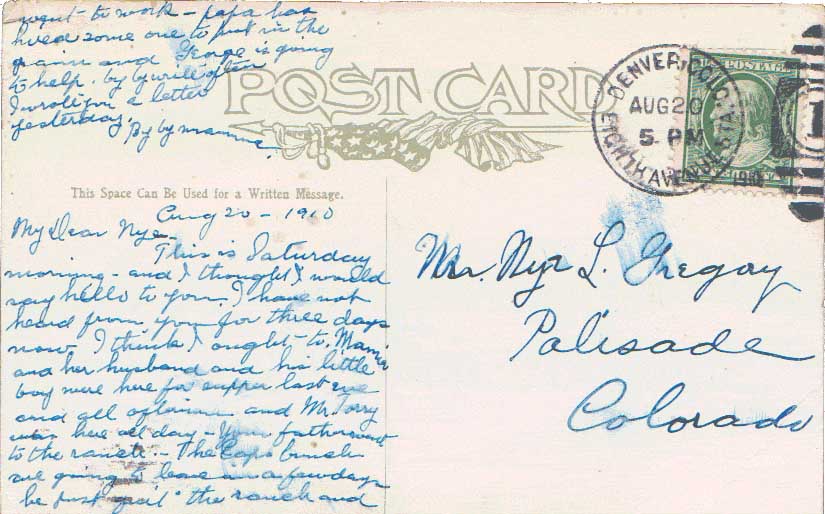 went to work - papa has
hired some one to put in the
grain and George is going
to help. by by write often
I wrote you a letter
yesterday.
By by mamma
POST CARD
DENVER, COLO.
AUG 20
5. PM
1910
EIGHTH AVENUE STA.
U.S. POSTAGE
This Space Can Be Used for a Written Message.
Aug 20 - 1910
My Dear Nye -
This is Saturday
morning - and I thought I would
say hello to you. I have not
heard from you for three days
now I think I ought to. Mamie
and her husband and his little
boy were here for supper last eve
and all afternoon and Mr. Torry
was here all day - Your father went
to the ranch - The bunch
are going to leave in a few days
he just quit the ranch and
Mr. Nye L. Gregory
Palisade
Colorado